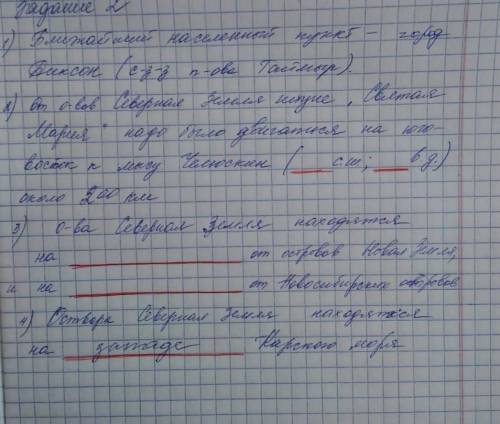 Задание 2
1) Ближайший населенный пункт – город
Диксон (с-з-з п-ова Таймыр).
2) от о-вов Северная Земля шхуне „Святая
Мария" надо было двигаться на юго-
восток к мысу Челюскин (___ с.ш; ___ в.д.)
около 200 км
3) о-ва Северная Земля находятся
на ___ от островов Новая Земля,
и на ___ от Новосибирских островов
4) Острова Северная Земля находятся
на западе Карского моря